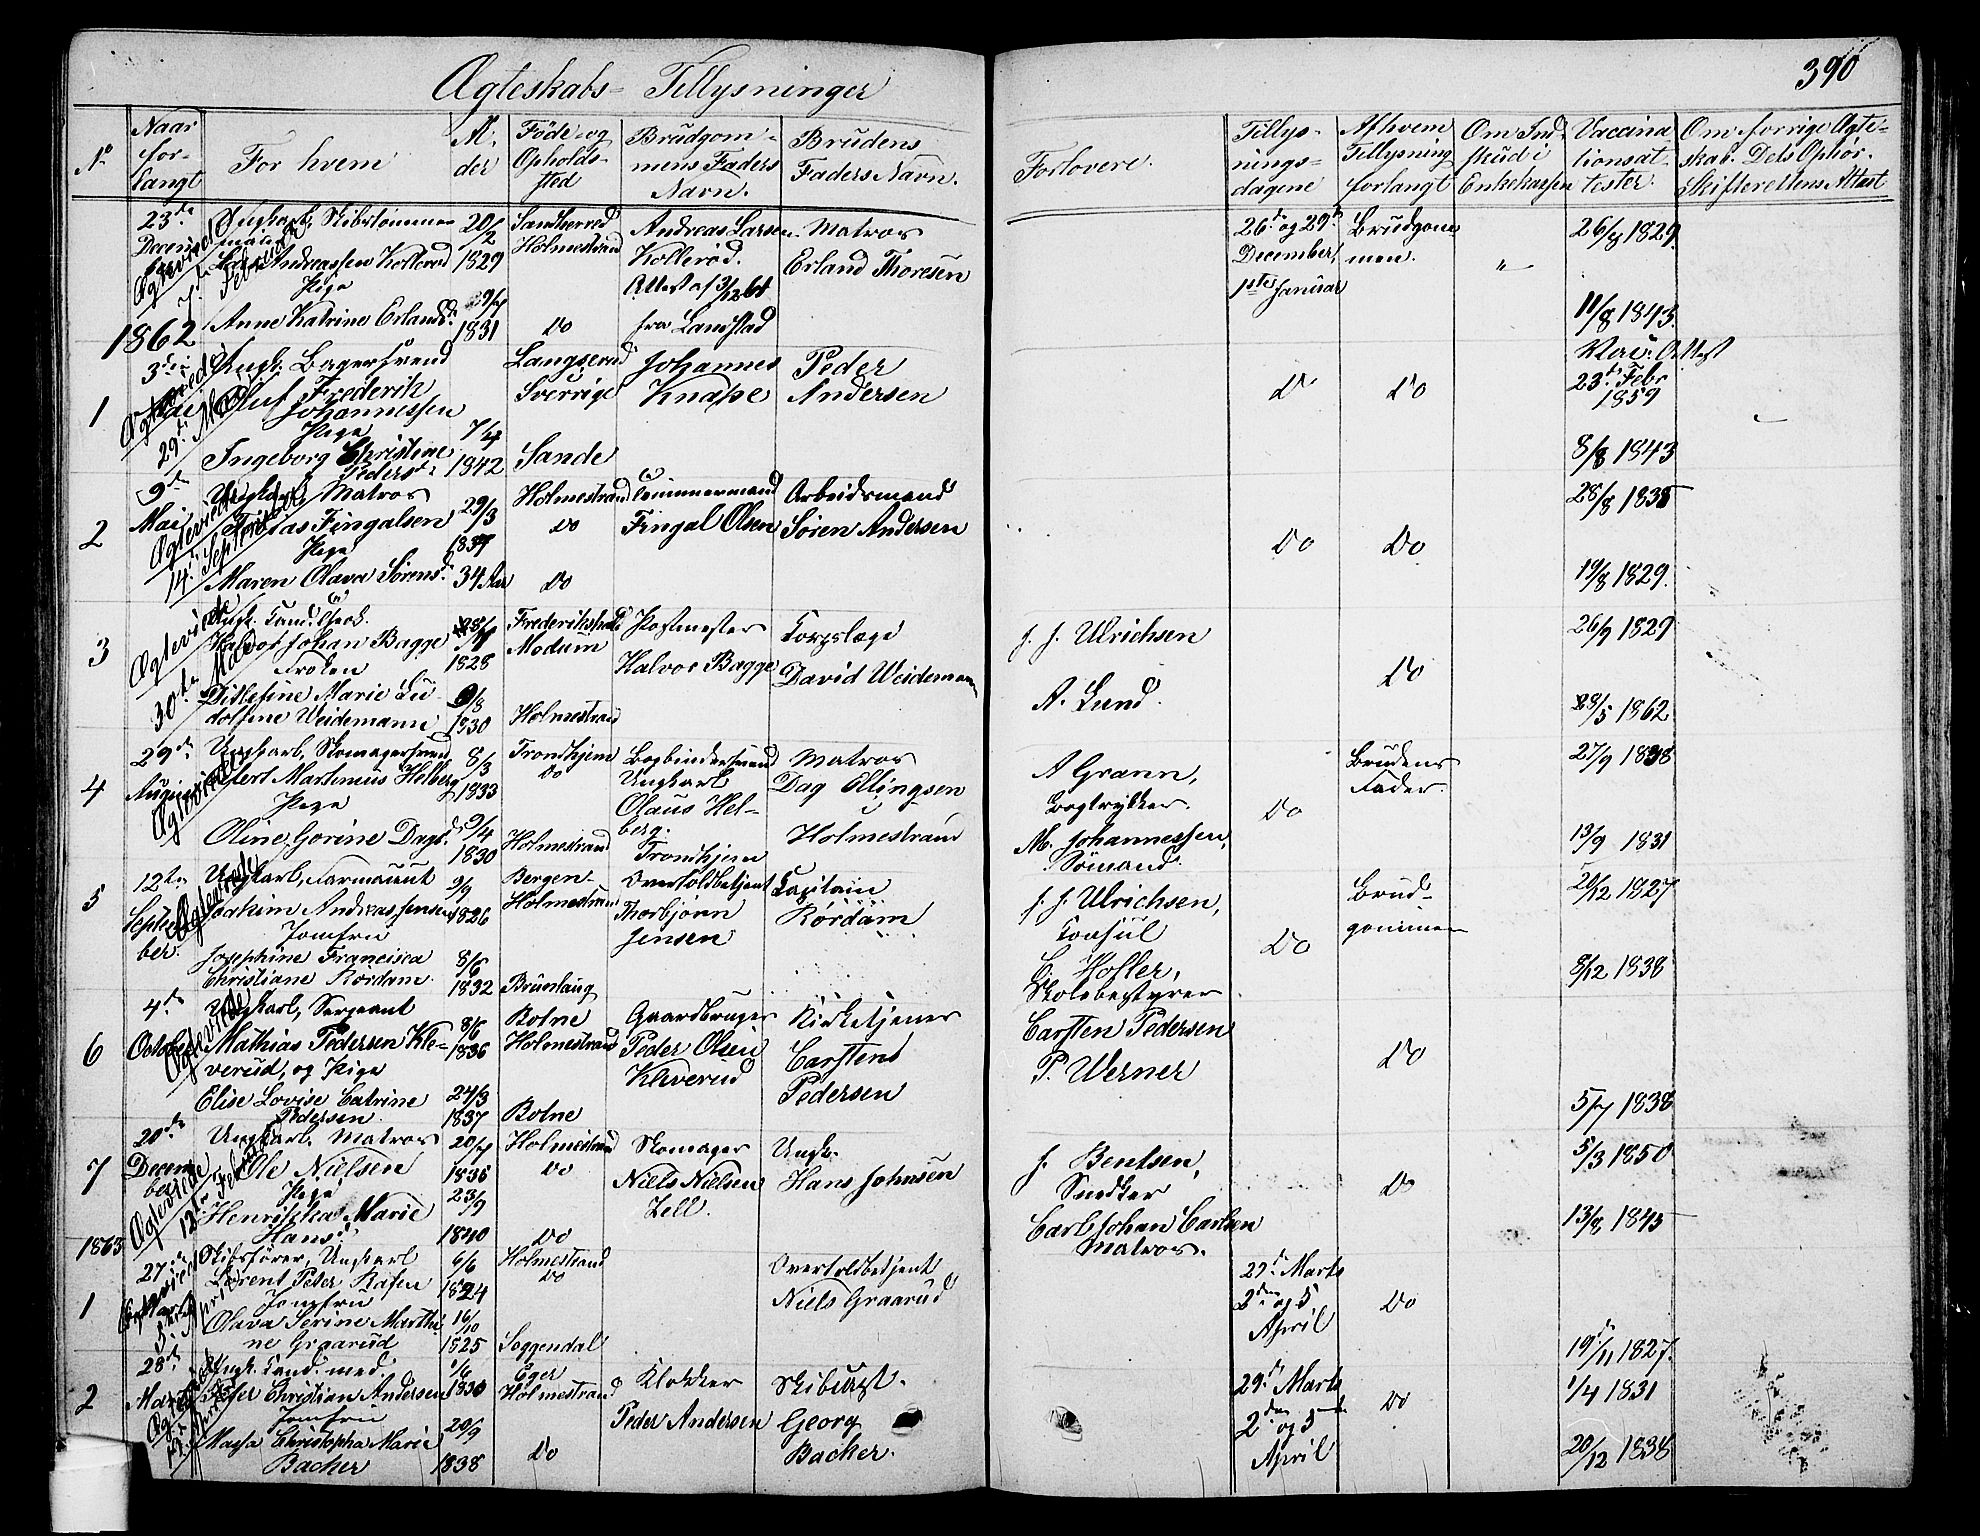 390
Ægteskabs- Tillysninger
No
Naar forlangt
For hvem
Alder
Føde- og Opholdssted
Brudgommens Faders Navn.
Brudens Faders Navn.
Forlovere.
Tillysningsdagene
Af hvem Tillysning forlangt
Om Indskud i Enkekassen
Vaccinationsattester.
Om forrige Ægteskab. Dets Ophør. Skifterettens Attest
23de Ungkarl, Skibstømmer- 20/2 Sandherred Andreas Larsen Matros 26de og 29de Brudgom- 26/8 1829
Andreassen Kollerød 1829 Holmestrand Kollerød. Erland Thoresen December, men. "
Ægteviede 7de Februar
Pige Attest af 3/12 61 1ste Januar
Anne Katrine Erlandsd. 1831 Do fra Lamstad 11/8 1843.
1862
3die Mai Ungk. Bagersvend Langserud Johannes Peder Vac. Attest
1 Oluf Frederik Sverrige Knape Andersen Do Do 23de Febr 1859
Johannessen
Ægteviede 29de Mai
Pige 7/4
Ingeborg Christine Pedersd. 1842 Sande 8/8 1843
9de Ungkarl, Matros 29/3 Holmestrand Tømmermand Arbeidsmand 28/8 1835
2 Mai Tobias Fingalsen 1837 Do Fingal Olsen Søren Andersen Do Do
Ægteviede 14de September
Pige
Maren Olava Sørensd. 34 Aar Do 19/8 1829.
Ungk. Cand. theol. Frederikshald Postmester Corpslæge J. J. Ulrichsen 26/9 1829
3 Halvor Johan Bagge 1828 Modum Halvor Bagge David Weidemann A. Lund. Do
Ægteviede 30te
Frøken
Ditlefine Marie Lu- 9/8
dolfine Weidemann 1830 Holmestrand 28/5 1862
29de Ungkarl, Skomagersvend 8/3 Trondhjem Bogbindersvend Matros A Grann, Brudens 27/9 1838
4 August Martinius Helberg 1833 Do Ungkarl Dag Ellingsen Bogtrykker. Do Fader.
Ægteviede
Pige Olaus Helberg. i M. Johannessen,
Oline Gorine Dagsd. 9/4 1830 Holmestrand Trondhjem Holmestrand Sømand. 13/9 1831
12te Ungkarl, Farmaceut 9/9 Bergen- Overtoldbetjent Capitain J. J. Ulrichsen, Brud- 20/12 1827
5 September. Joakim Andreas Jensen 1826 Holmestrand Thorbjørn Jensen Rördam Consul Do gommen
Ægteviede
Jomfru
Josephine Francisca 8/6 C. Holler,
Christiane Rördam. 1832 Brunlaug Skolebestyrer 8/12 1838
4de Ungkarl, Sergeant 8/6 Botne Gaardbruger Kirketjener Carsten Pedersen
6 October Mathias Pedersen Kle- 1836 Holmestrand Peder Olsen Carsten P. Werner Do
Ægteviede
verud, og Pige Kleverud Pedersen
Elise Lovise Catrine 24/3 5/7 1838
Pedersen. 1837 Botne
20de Ungkarl, Matros 20/7 Holmestrand Skomager Ungk. J. Bentsen, 5/3 1850
7 December Ole Nielsen 1836 Do Niels Nielsen Hans Johnsen Snedker Do
Ægteviede 12te Februar
Pige 23/9 Zell.
Henrikka Marie Hansd. 1840 Do Carl Johan Carlsen Matros. 13/8 1845
1863
27de Skibsfører, Ungkarl 6/6 Holmestrand Overtoldbetjent 29de Marts
1 Lorent Peter Rafen 1824 Do Niels Graarud 2den og 5 Do
Ægteviede 5te April
Jomfru April
Olava Serine Marthi- 16/10
ne Graarud 1825 Soggendal 19de/11 1827.
28de Ungk. Cand. med. 1/6 Eger Klokker Skibscpt. 29de Marts
2 Marts Peter Christian Andersen 1830 Holmestrand Peder Andersen Georg 2den og 5 Do 1/4 1831
Ægteviede 19de April
Jomfru 20/9 Bacher. April
Magfa Christopha Marie
Bacher 1838 Do 20/12 1838